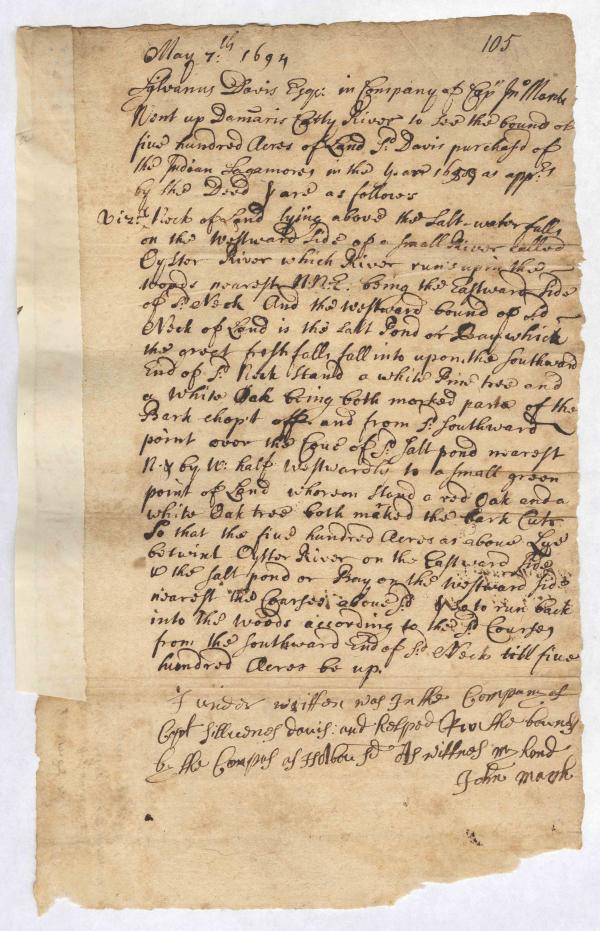 105
May 7:th 1694
Sylvanus Davis Esqr: in Company of Cap Jno
Went up Damaris Cotty River to See the bound of
five hundred Acres of Land Sd. Davis purchasd of
the Indian Sagamores in the Year as appes
by the Deed & are as follows
Vizt. Neck of Land lying above the Salt-water falls
on the Westward Side of a Small River called
Oyster River which River runs up in the
woods nearest N.N.E. being the Eastward Side
of Sd. Neck And the westward bound of sd
Neck of Land is the Salt Pond or Bay which
the great fresh falls fall into upon the Southward
End of Sd. Neck Stand a white Pine tree and
a White Oak being both marked parte of the
Bark chopt off. and from Sd. Southward
point over the Coue of Sd. Salt pond nearest
N: by W: half westwardly to a Small green
point of Land whereon Stand a red Oak and a
white Oak tree both marked the bark Cutt
So that the five hundred Acres as above Lye
betwint Oyster River on the Eastward Side
& the Salt pond or Bay on the westward Side
nearest the Courses aboue sd. & so to run back
into The woods according to the Sd Courses
from the Southward End of Sd. Neck till five
hundred Acres be up.
I under written was In the Company of
Capt Silluenes dauis: and helped the bounds
by the Compas as Abou sd As wittnes my hand
John